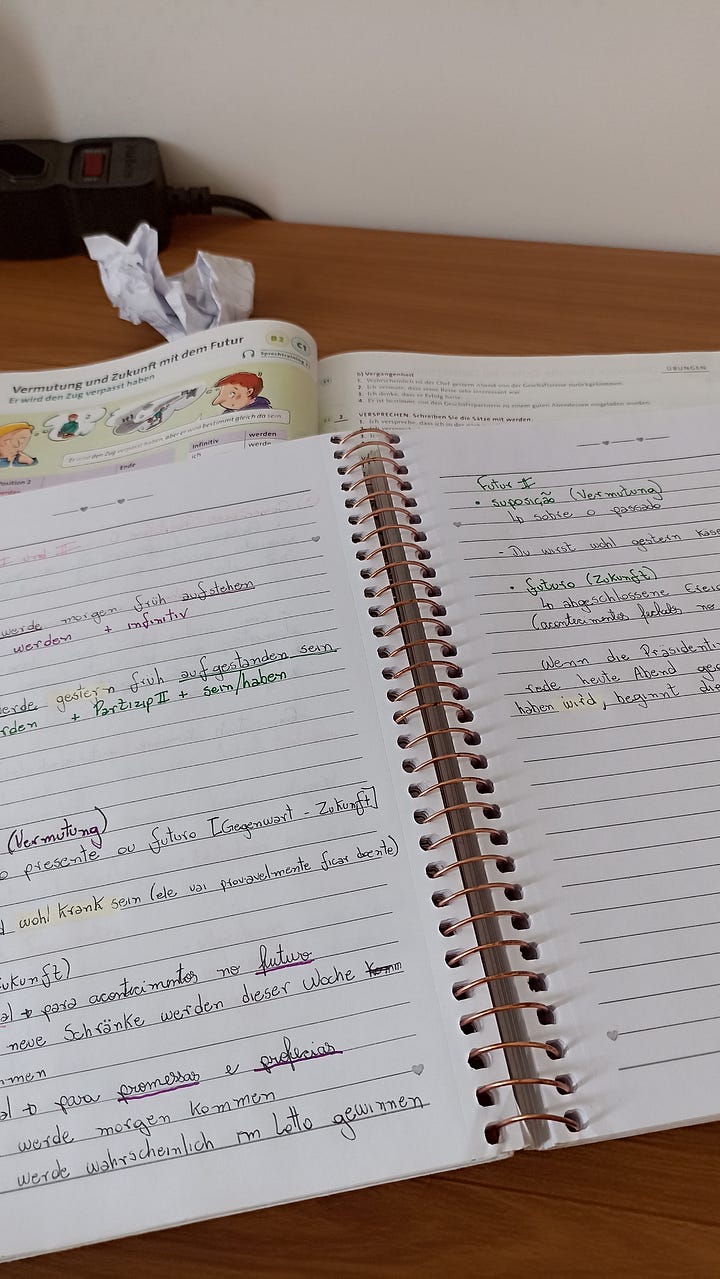 B2
C1
Vermutung und Zukunft mit dem Futur
Er wird den Zug verpasst haben
Er wird den Zug verpasst haben, aber er wird bestimmt gleich da sein.
Position 2
Ende
Infinitiv
werden
ich
werde
ÜBUNGEN
b) Vergangenheit
1. Wahrscheinlich ist der Chef gestern Abend von der Geschäftsreise zurückgekommen.
2. Ich vermute, dass seine Reise sehr interessant war.
3. Ich denke, dass er Erfolg hatte.
4. Er ist bestimmt von den Geschäftspartnern zu einem guten Abendessen eingeladen worden.
3
VERSPRECHEN. Schreiben Sie die Sätze mit werden.
werde morgen früh aufstehen
werden + infinitiv
werde gestern früh aufgestanden sein
rden + Partizip II + sein/haben
(Vermutung)
o presente ou futuro [Gegenwart - Zukunft]
d wohl krank sein (ele vai provavelmente ficar doente)
ukunft)
para acontecimentos no futuro
neue Schränke werden dieser Woche
mmen
para promessas e profecias
werde morgen kommen
werde wahrscheinlich im Lotto gewinnen
Futur II
• suposição (Vermutung)
↳ sobre o passado
- Du wirst wohl gestern
• futuro (Zukunft)
↳ abgeschlossene
(acontecimentos
Wenn die Präsidentin
rede heute Abend
haben wird, beginnt